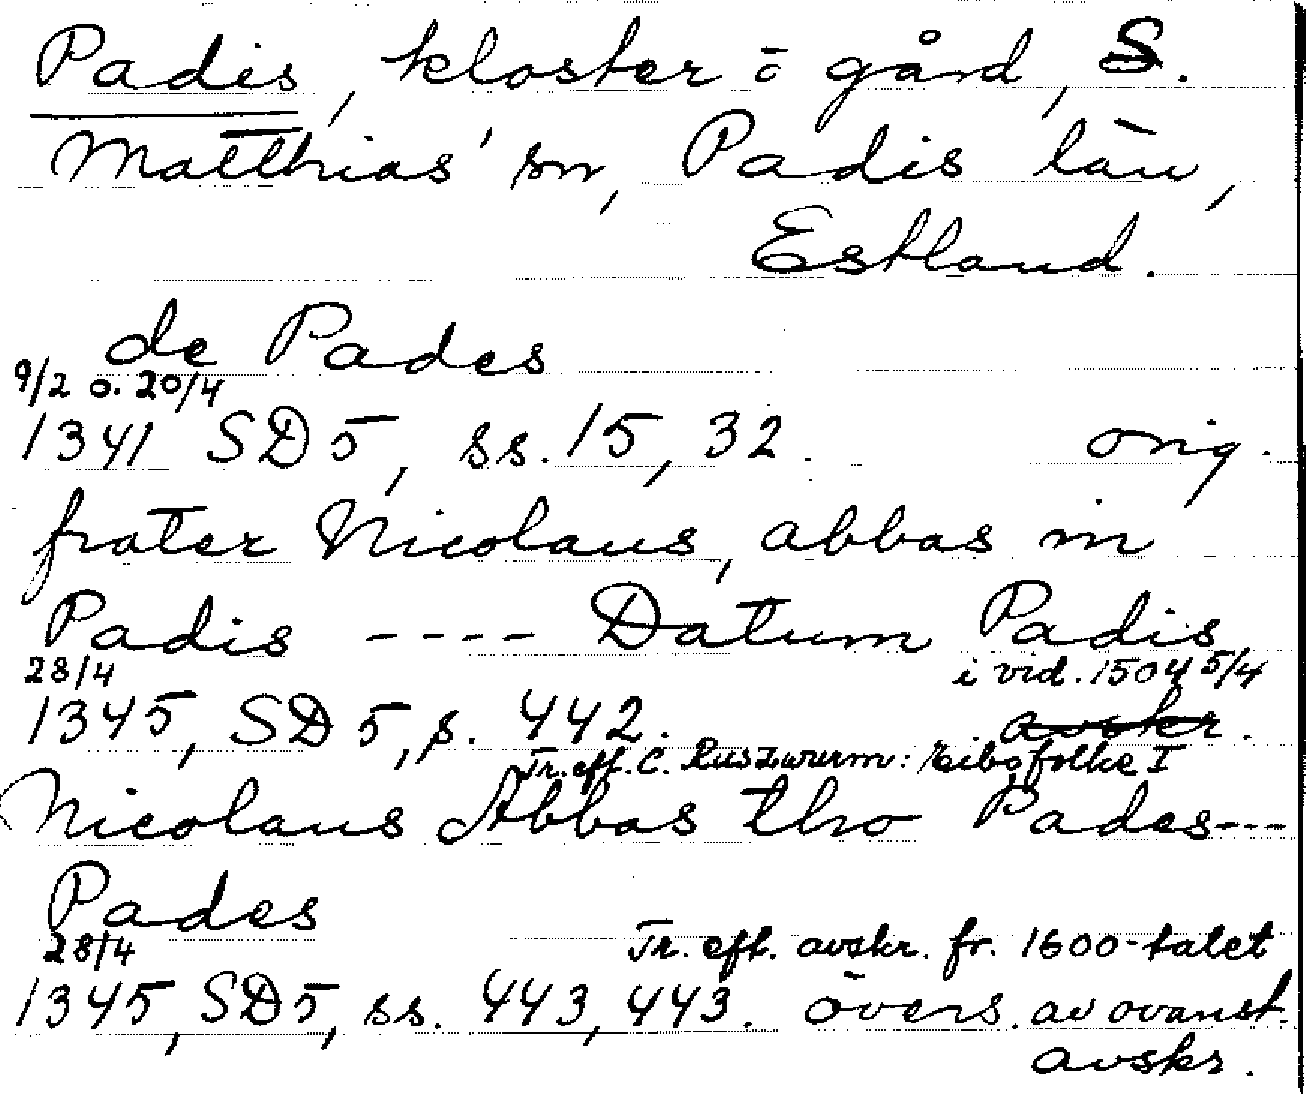 Padis, kloster ō gård, S.
Matthias' sn, Padis län,
Estland.
de Pades
9/2 o. 20/4
1341 SD 5, ss. 15, 32. orig.
frater Nicolaus, abbas in
Padis ---- Datum Padis
28/4 i vid. 1504 5/4
1345, SD 5, s. 442. avskr.
Tr. eft. C. Ruszwurm: Eibofolke I
Nicolaus Abbas tho Pades---
Pades
28/4 Tr. eft. avskr. fr. 1600-talet
1345, SD 5, ss. 443, 443. övers. av ovanst.
avskr.